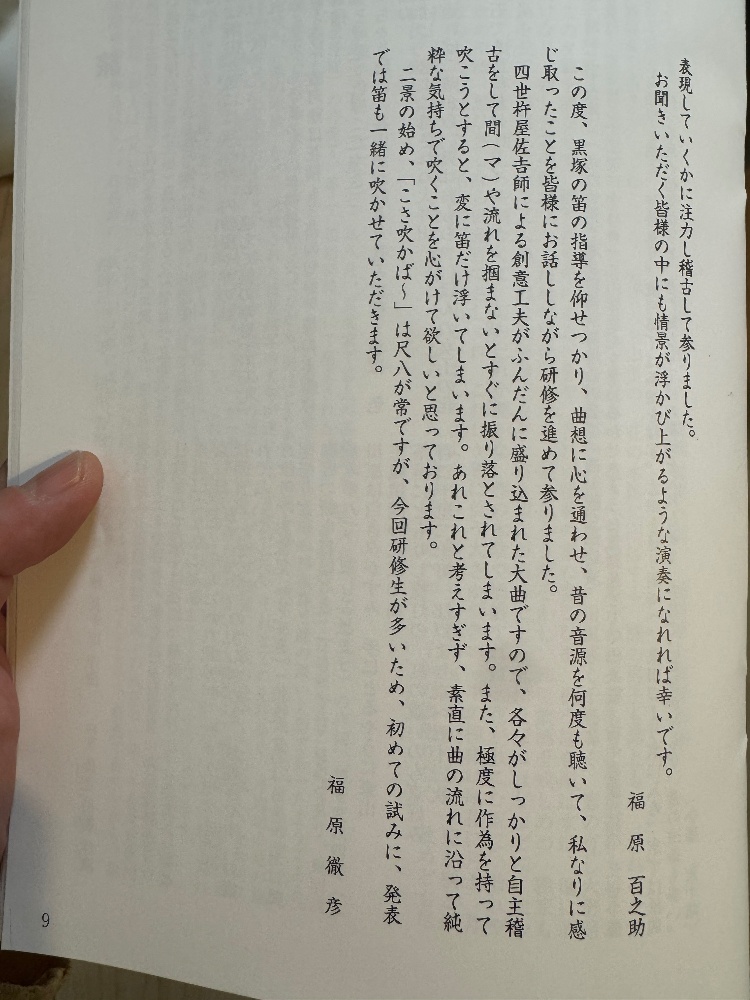 表現していくかに注力し稽古して参りました。
お聞きいただく皆様の中にも情景が浮かび上がるような演奏になれれば幸いです。
福原 百之助
この度、黒塚の笛の指導を仰せつかり、曲想に心を通わせ、昔の音源を何度も聴いて、私なりに感
じ取ったことを皆様にお話ししながら研修を進めて参りました。
四世杵屋佐吉師による創意工夫がふんだんに盛り込まれた大曲ですので、各々がしっかりと自主稽
古をして間（マ）や流れを掴まないとすぐに振り落とされてしまいます。また、極度に作為を持って
吹こうとすると、変に笛だけ浮いてしまいます。あれこれと考えすぎず、素直に曲の流れに沿って純
粋な気持ちで吹くことを心がけて欲しいと思っております。
二景の始め、「こさ吹かば～」は尺八が常ですが、今回研修生が多いため、初めての試みに、発表
では笛も一緒に吹かせていただきます。
福原 徹彦
9